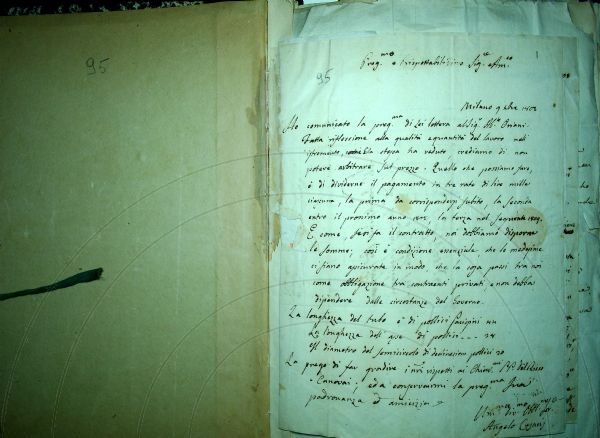 95
95
Preg.mo e Rispettabilissimo Sig.re e Am.co
Milano 9 1802
Ho comunicato la preg.ma di Lei lettera al Sig. Ab.e Oriani.
Fatta riflessione alla qualità e quantità del lavoro nell'
istromento, come Ella stessa ha veduto crediamo di non
potere arbitrare sul prezzo. Quello che possiamo fare
è di dividerne il pagamento in tre rate di lire mille
ciascuna, la prima da corrispondersi subito, la seconda
entro il prossimo anno 1803, la terza nel seguente 1804.
E come si fa il contratto, noi dobbiamo disporre
le somme; così è condizione essenziale che le medesime
ci siano assicurate in modo, che la cosa passi tra noi
come obbligazione tra contraenti privati e non debba
dipendere dalle circostanze del Governo.
La longhezza del tubo è di pollici parigini 44
La longhezza dell'asse di pollici 24
Il diametro del semicircolo di declinazioni pollici 20
La prego di far gradire i miei rispetti ai
Canovai, ed a conservarmi la preg.ma sua
padronanza ed amicizia
Angelo Cesaris